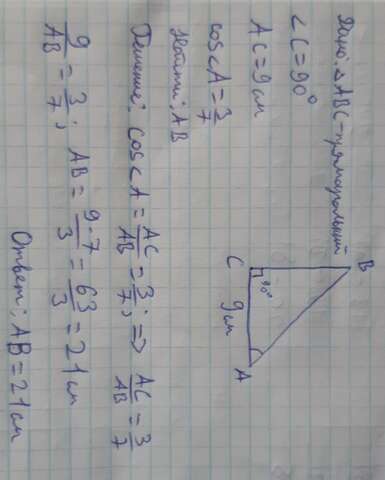 Дано: △ABC – прямоугольный
∠C = 90°
AC = 9 см
cos∠A = 3/7
Найти: AB
B
C
90°
9 см
A
Решение: cos∠A = AC/AB = 3/7; => AC/AB = 3/7
9/AB = 3/7; AB = 9·7/3 = 63/3 = 21 см
Ответ: AB = 21 см